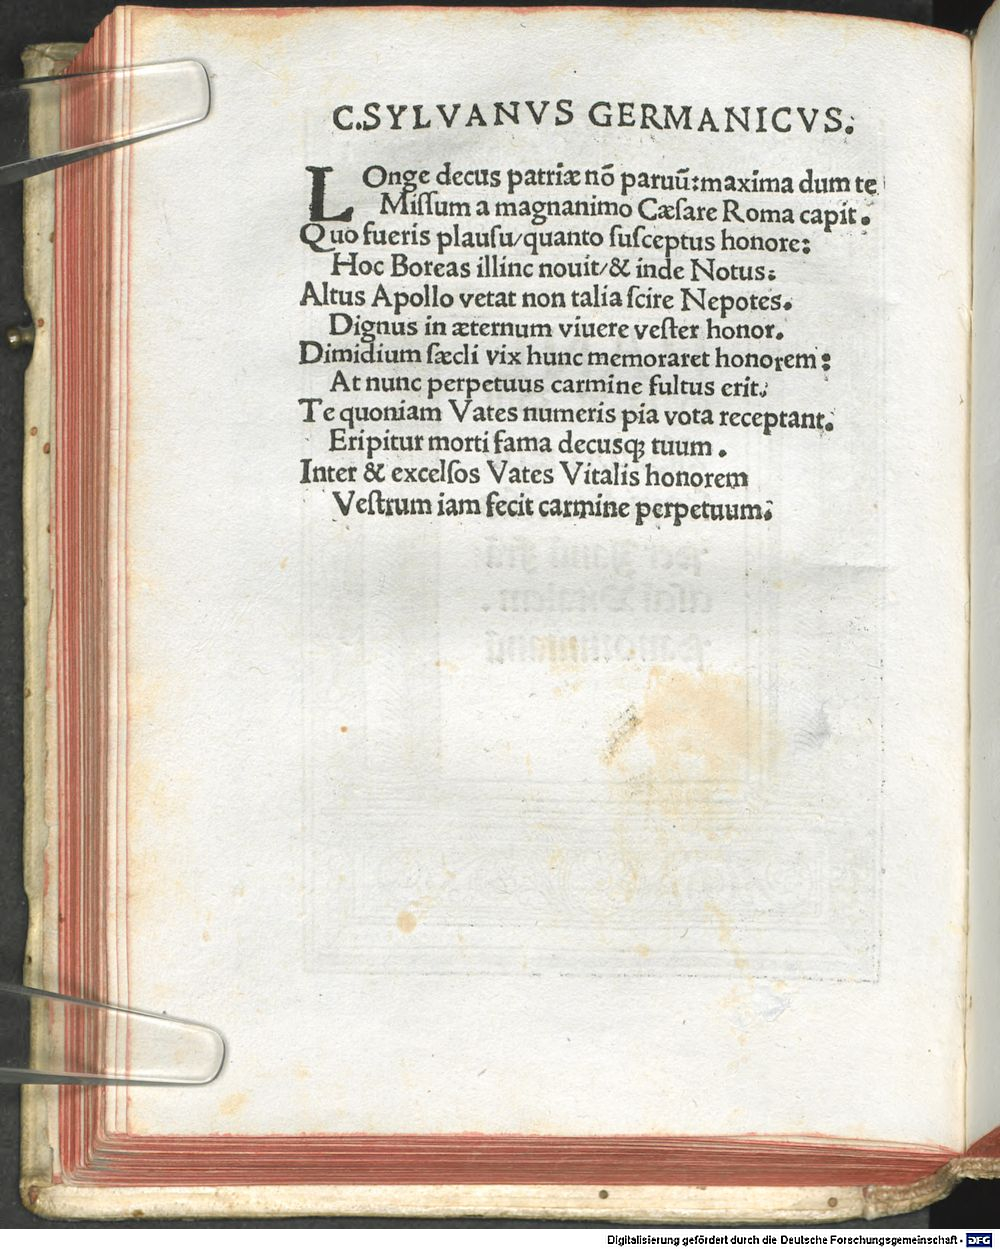 C.SYLVANVS GERMANICVS.
LOnge decus patriæ nō paruū:maxima dum te
Miſſum a magnanimo Cæſare Roma capit.
Quo fueris plauſu/quanto ſuſceptus honore:
Hoc Boreas illinc nouit/& inde Notus:
Altus Apollo vetat non talia ſcire Nepotes.
Dignus in æternum viuere veſter honor.
Dimidium ſæcli vix hunc memoraret honorem:
At nunc perpetuus carmine fultus erit.
Te quoniam Vates numeris pia vota receptant.
Eripitur morti fama decusqꝫ tuum.
Inter & excelſos Vates Vitalis honorem
Veſtrum iam fecit carmine perpetuum.
Digitalisierung gefördert durch die Deutsche Forschungsgemeinschaft - DFG